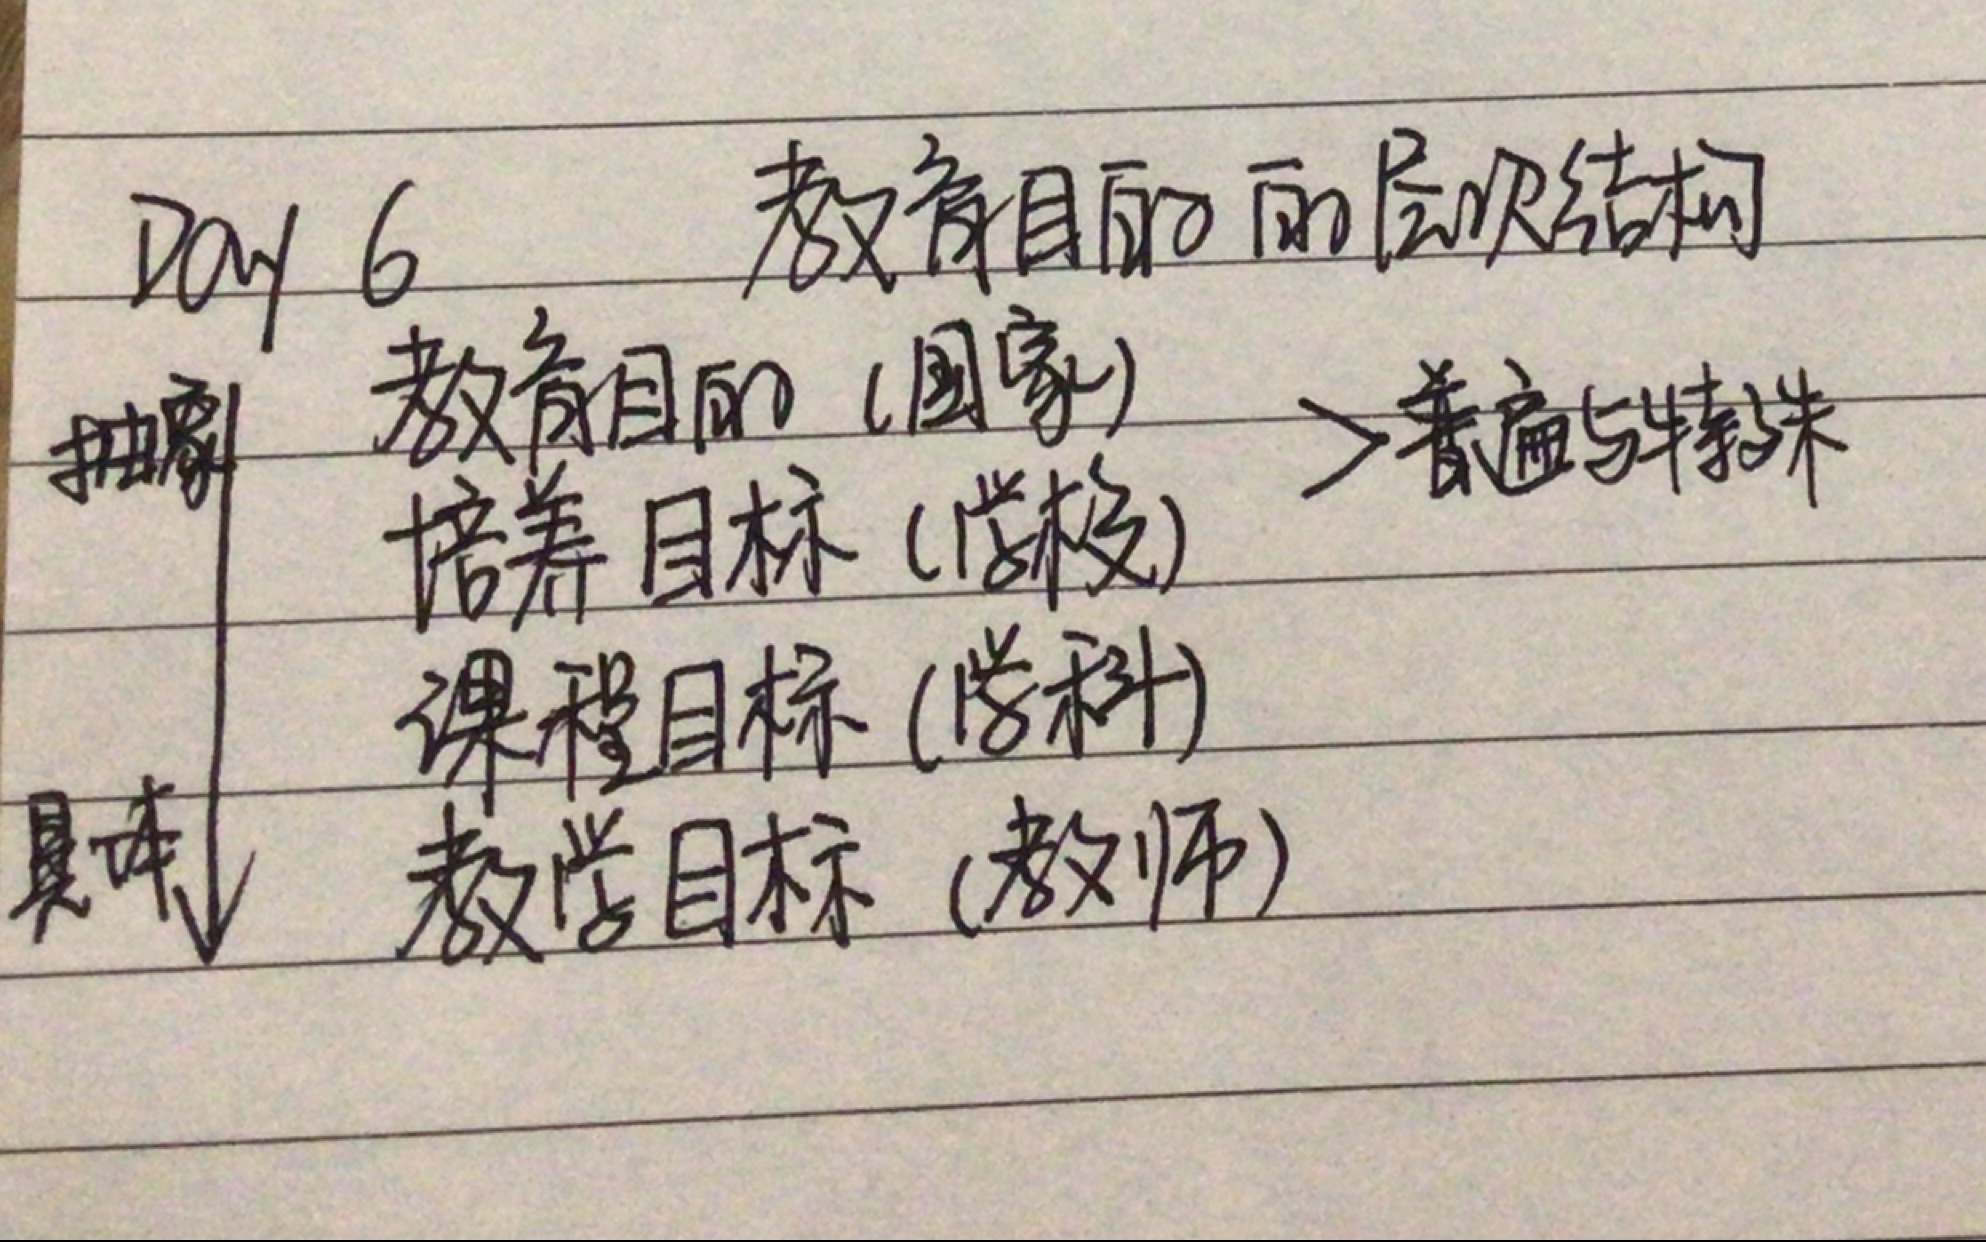 Day 6 教育目的的层次结构
抽象 教育目的（国家） >普遍与特殊
培养目标（学校）
课程目标（学科）
具体 教学目标（教师）